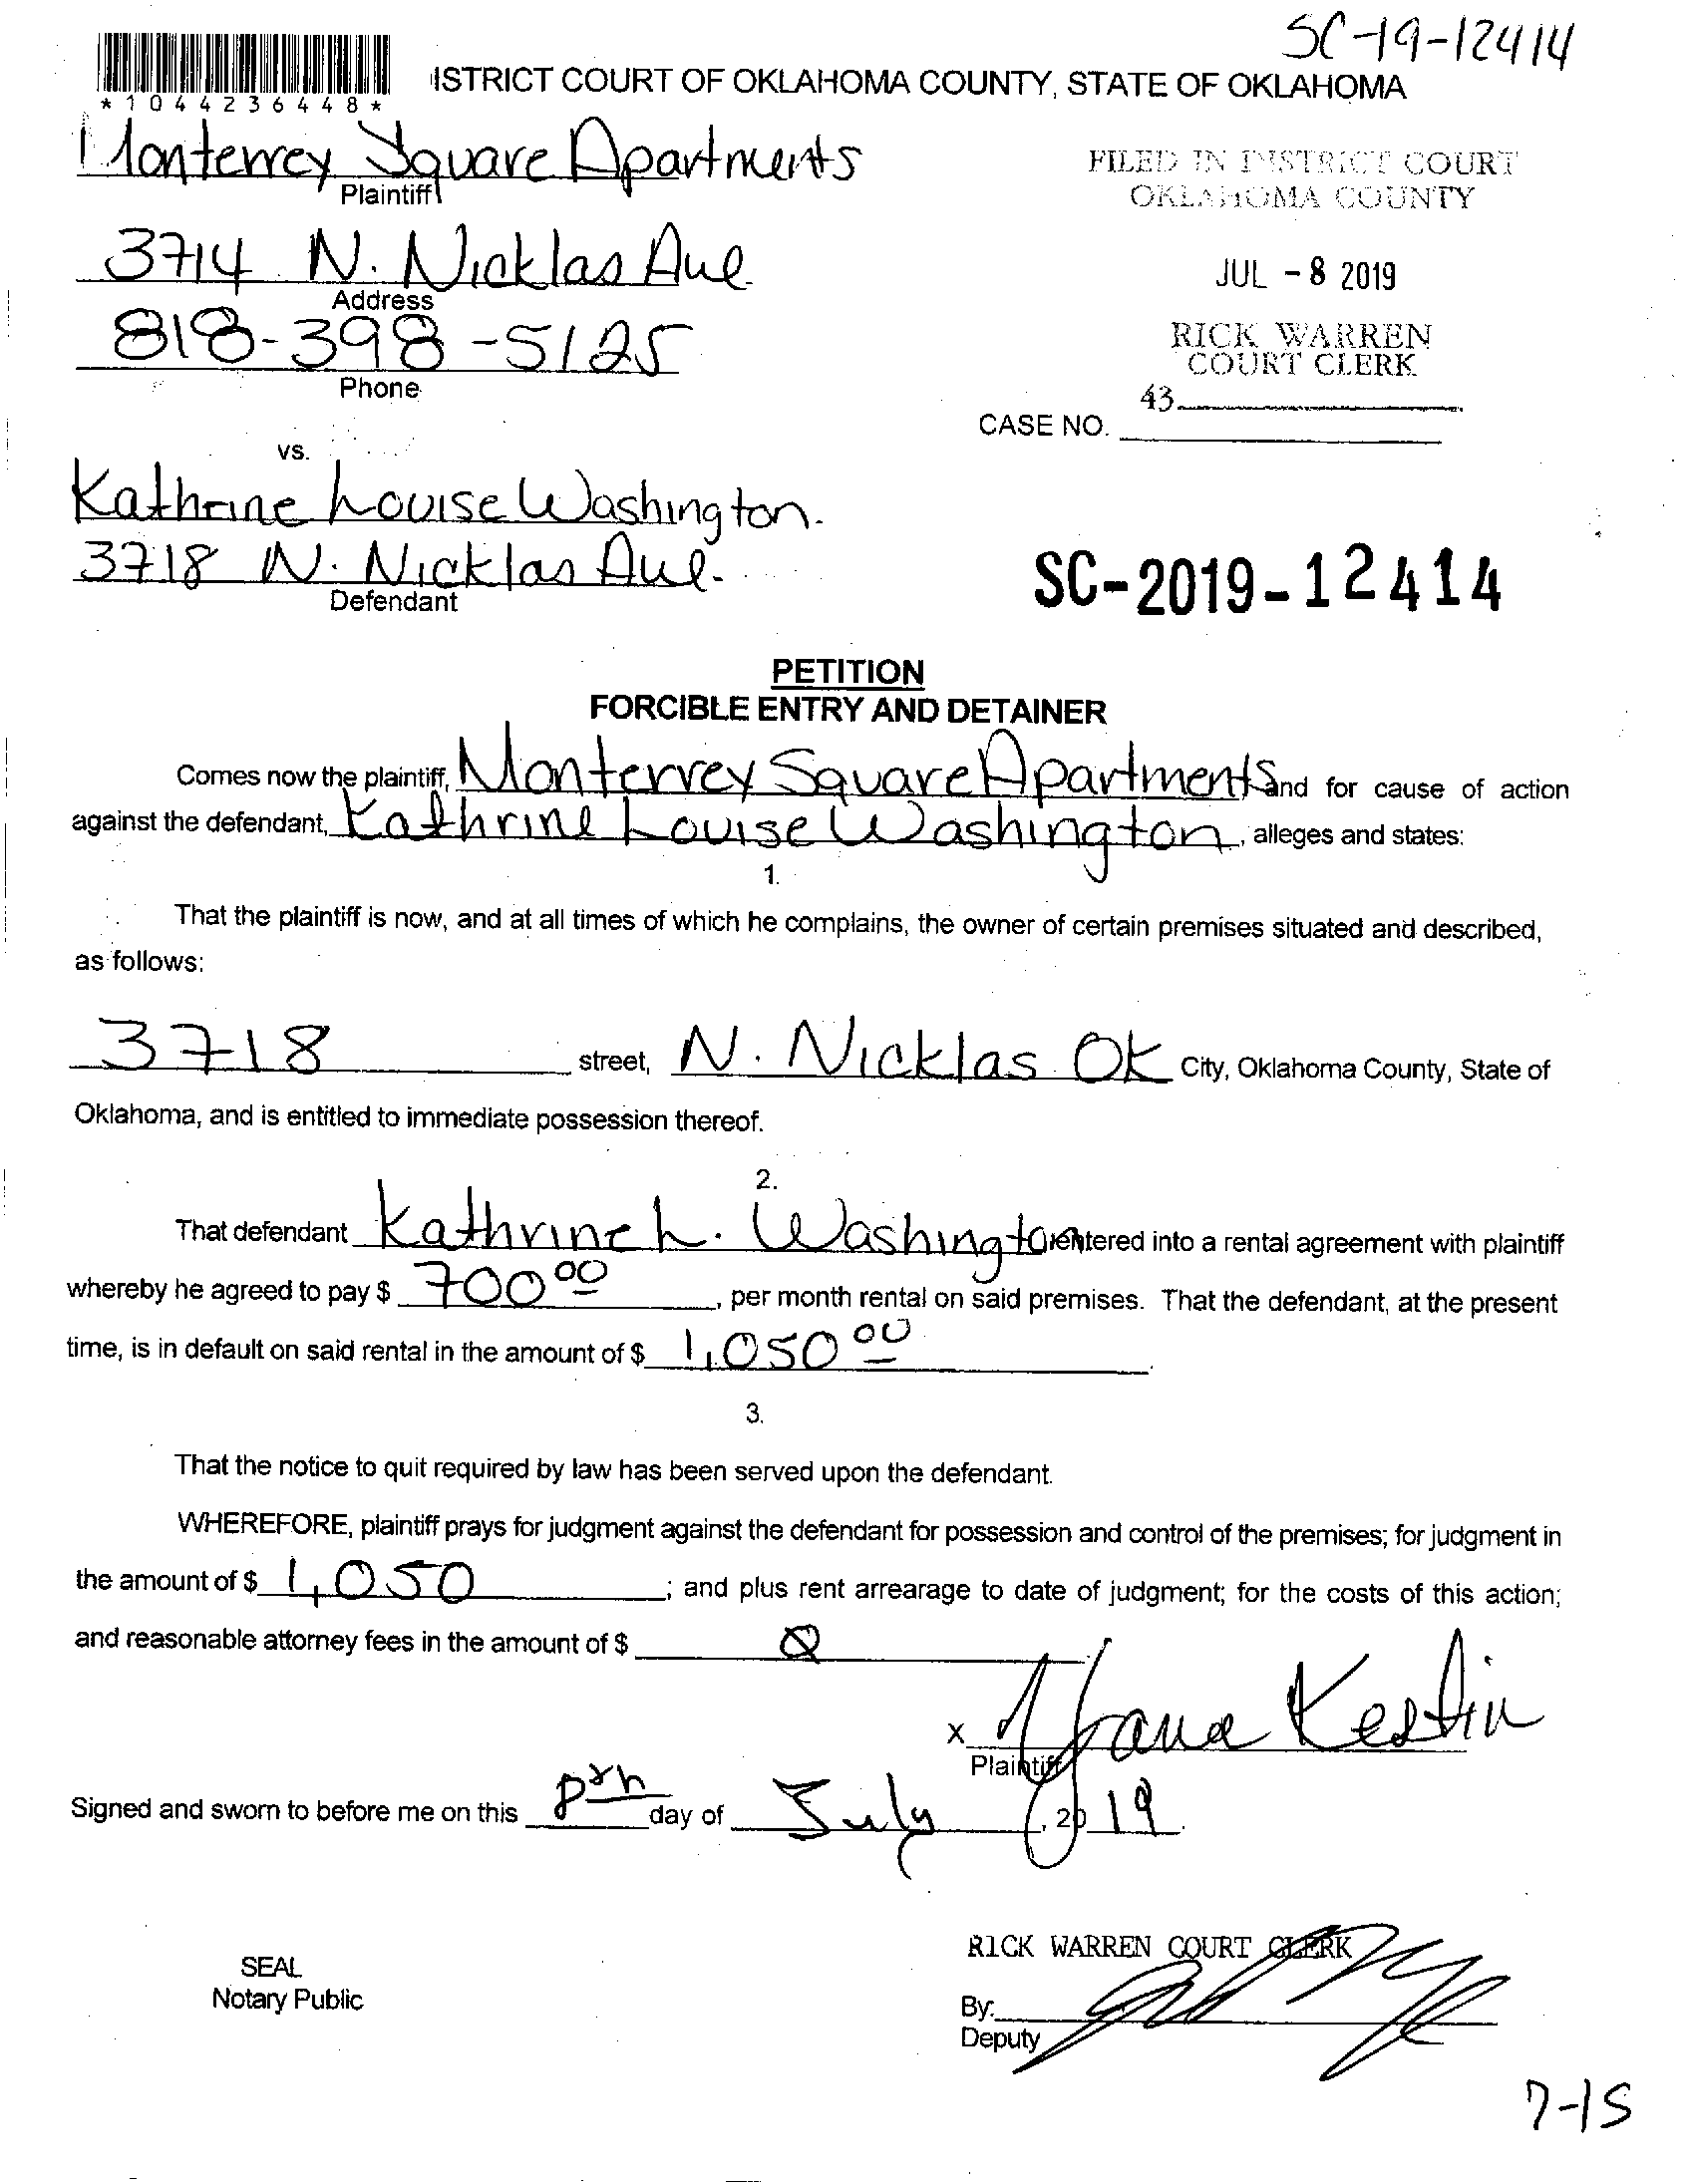 SC-19-12414
*1044236448*
ISTRICT COURT OF OKLAHOMA COUNTY, STATE OF OKLAHOMA
Monterrey Square Apartments
Plaintiff
FILED IN DISTRICT COURT
OKLAHOMA COUNTY
3714 N. Nicklas Ave.
Address
JUL - 8 2019
818-398-5125
Phone
RICK WARREN
COURT CLERK
43
CASE NO.
vs.
Kathrine Louise Washington.
3718 N. Nicklas Ave.
Defendant
SC-2019-12414
PETITION
FORCIBLE ENTRY AND DETAINER
Comes now the plaintiff, Monterrey Square Apartments and for cause of action
against the defendant, Kathrine Louise Washington, alleges and states:
1.
That the plaintiff is now, and at all times of which he complains, the owner of certain premises situated and described,
as follows:
3718 street, N. Nicklas OK City, Oklahoma County, State of
Oklahoma, and is entitled to immediate possession thereof.
2.
That defendant Kathrine L. Washington entered into a rental agreement with plaintiff
whereby he agreed to pay $ 700 00, per month rental on said premises. That the defendant, at the present
time, is in default on said rental in the amount of $ 1,050 00.
3.
That the notice to quit required by law has been served upon the defendant.
WHEREFORE, plaintiff prays for judgment against the defendant for possession and control of the premises; for judgment in
the amount of $ 1,050; and plus rent arrearage to date of judgment; for the costs of this action;
and reasonable attorney fees in the amount of $ 0.
x Yana Kestin
Plaintiff
Signed and sworn to before me on this 8th day of July, 2019.
RICK WARREN COURT CLERK
SEAL
Notary Public
By:
Deputy
7-15